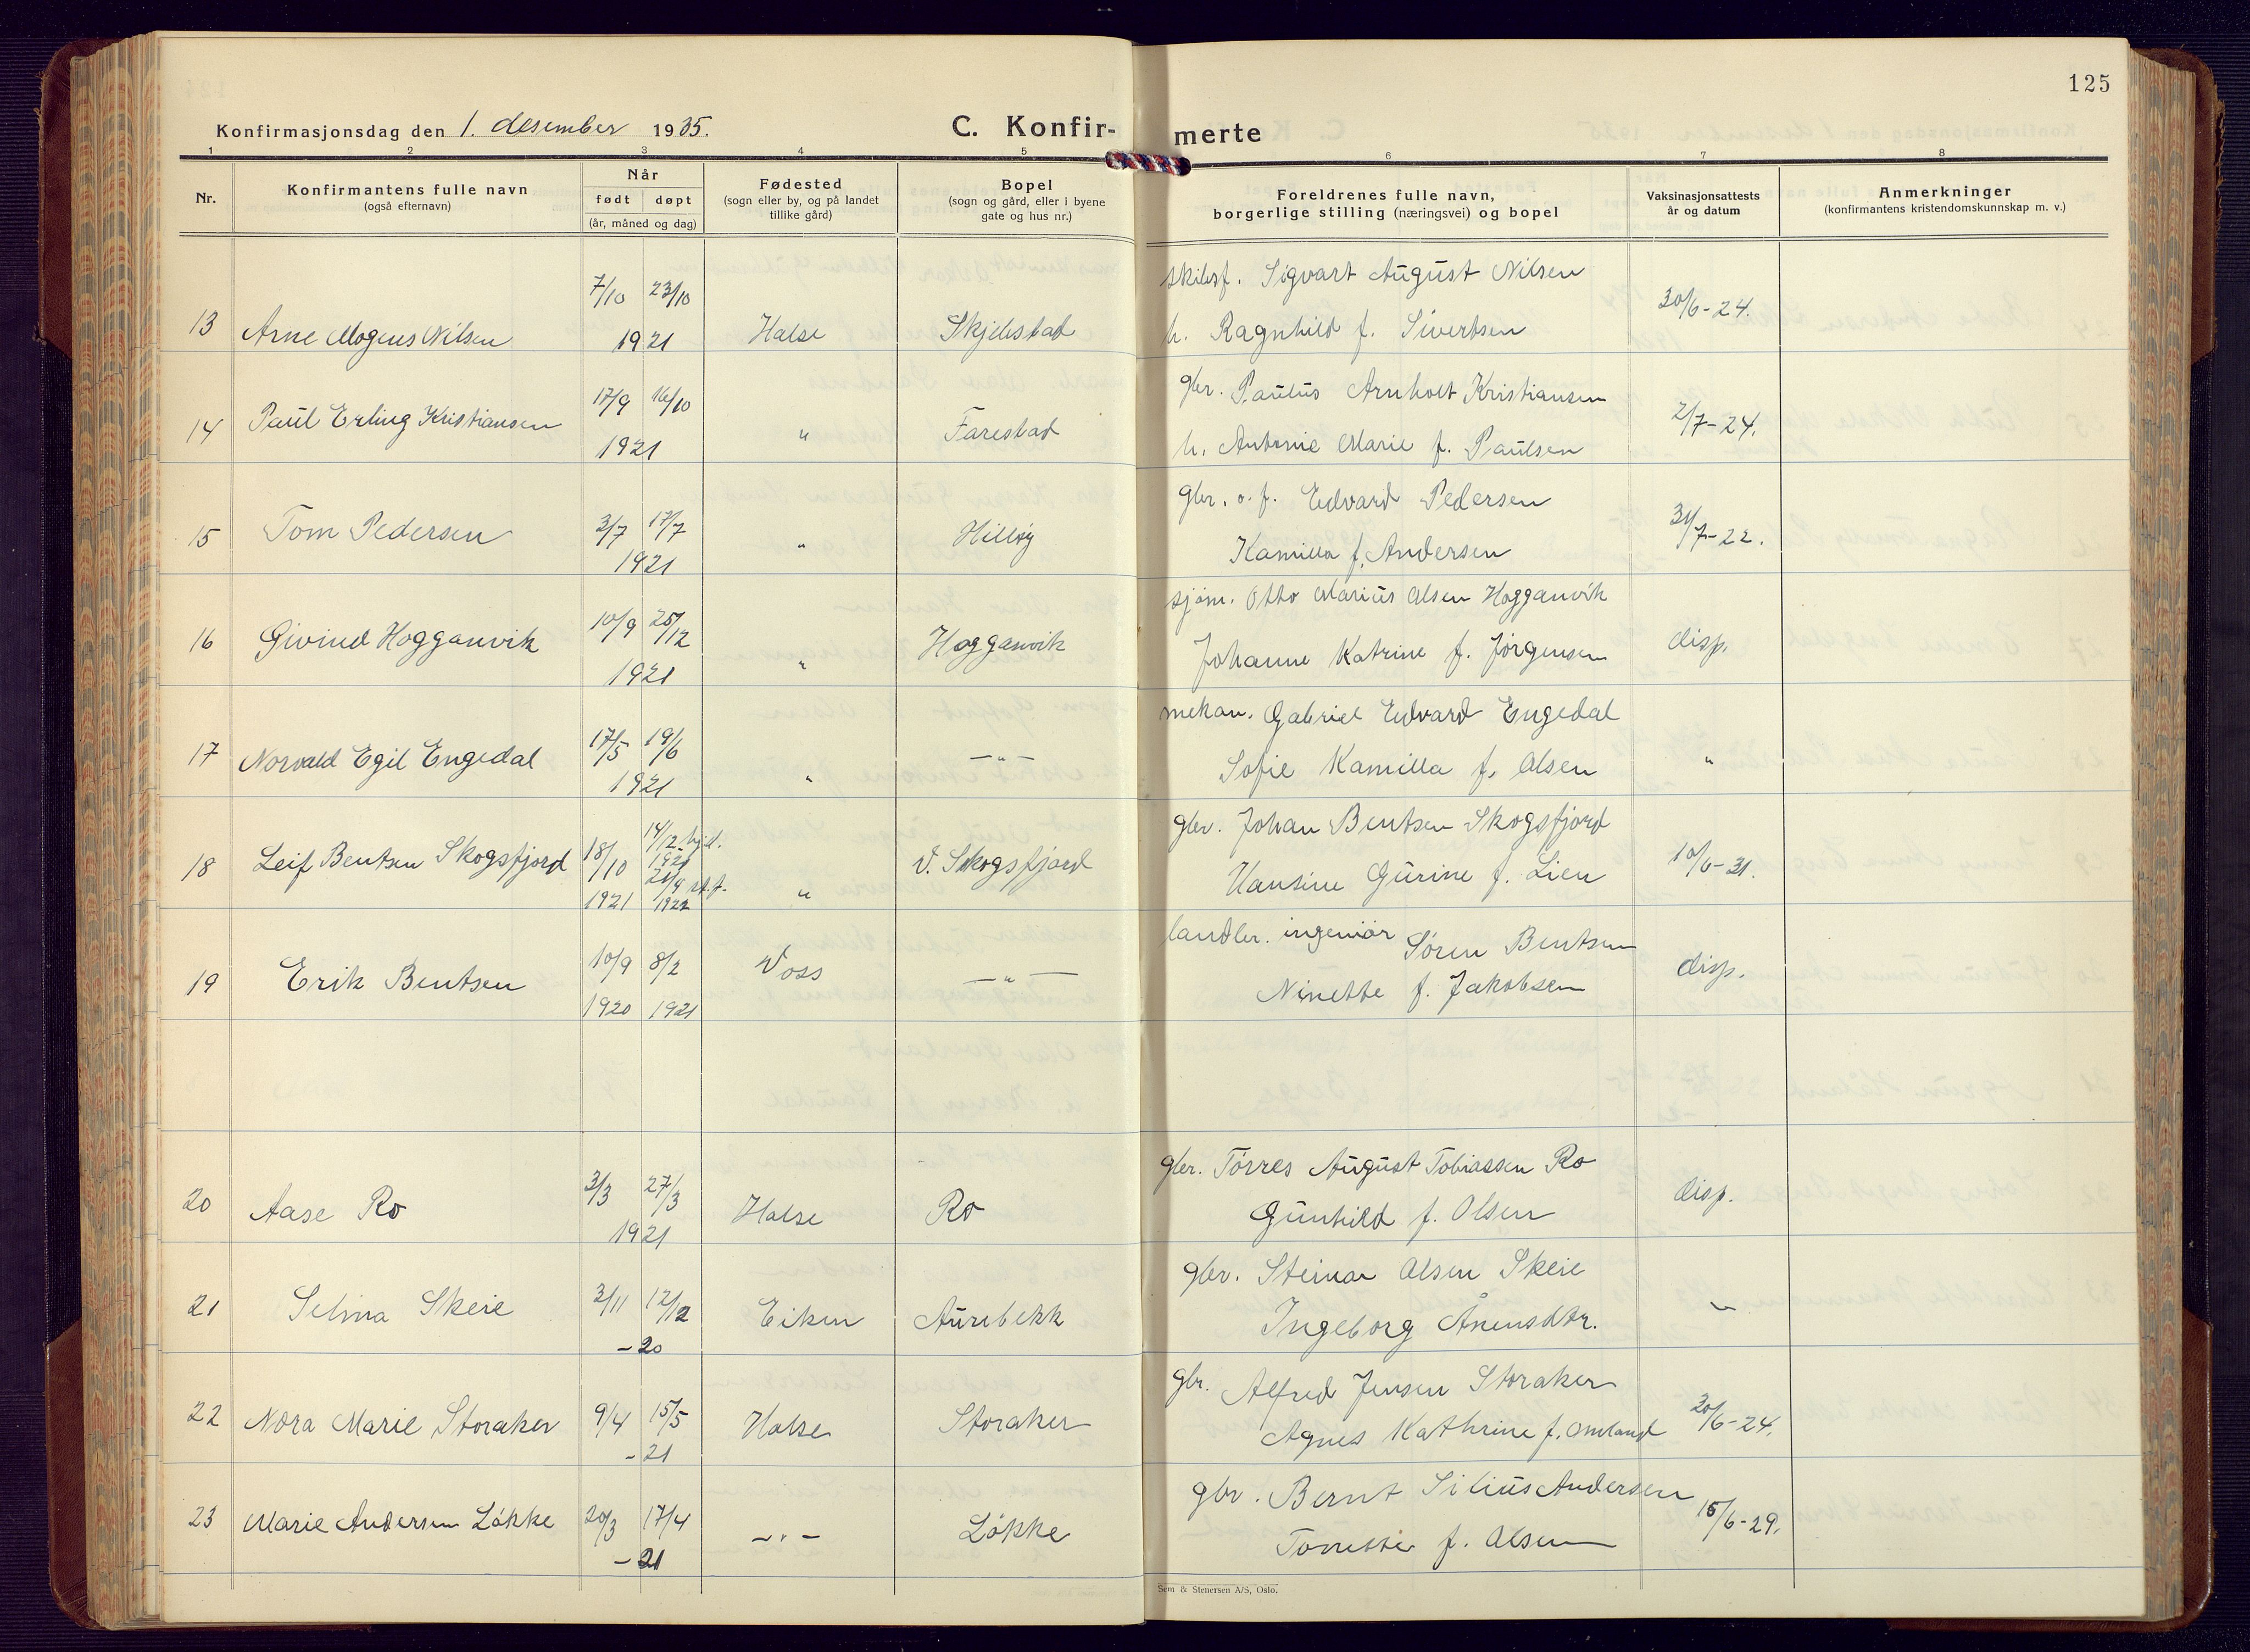 125
Konfirmasjonsdag den 1. desember 1935.
C. Konfir-
merte
1 2 3 4 5 6 7 8
Nr.
Konfirmantens fulle navn
(også efternavn)
Når
født døpt
(år, måned og dag)
Fødested
(sogn eller by, og på landet
tillike gård)
Bopel
(sogn og gård, eller i byene
gate og hus nr.)
Foreldrenes fulle navn,
borgerlige stilling (næringsvei) og bopel
Vaksinasjonsattests
år og datum
Anmerkninger
(konfirmantens kristendomskunnskap m. v.)
7/10 23/10 skibsf. Sigvart August Nilsen 30/6-24.
13 Arne Mogens Nilsen 1921 Halse Skjelstad h. Ragnhild f. Sivertsen
17/9 16/10 gbr. Paulus Arnholt Kristiansen
14 Paul Erling Kristiansen 1921 " Farestad h. Antonie Marie f. Paulsen 2/7-24.
gbr. o. f. Edvard Pedersen
15 Tom Pedersen 3/7 17/7 " Hilløy 31/7-22.
1921 Kamilla f. Andersen
sjøm. Otto Marius Olsen Hogganvik
16 Eivind Hogganvik 10/9 26/12 " Hogganvik disp.
1921 Johanne Katrine f. Jørgensen
mekan. Gabriel Edvard Engedal
17 Norvald Egil Engedal 17/5 19/6 " —"— "
1921 Sofie Kamilla f. Olsen
gbr. Johan Bentsen Skogsfjord
18 Leif Bentsen Skogsfjord 18/10 14/12 hjd. " V. Skogsfjord 10/6-31.
1921
1921 1922 Hansine Gurine f. Lien
landbr. ingeniör Sören Bentsen
19 Erik Bentsen 10/9 8/2 Voss —"— disp.
1920 1921 Ninette f. Jakobsen
gbr. Tørres August Tobiassen Ro
20 Aase Ro 3/3 27/3 Halse Ro disp.
1921 Gunhild f. Olsen
gbr. Steinar Olsen Skeie
21 Selma Skeie 3/11 12/12 Eiken Aurebekk "
-20 Ingeborg Ånensdtr.
gbr. Alfred Jensen Storaker
22 Nora Marie Storaker 9/4 15/5 Halse Storaker 30/6-24.
-21 Agnes Kathrine f. Omland
gbr. Bernt Silius Andersen
23 Marie Andersen Løkke 20/3 17/4 —"— Løkke 15/6-29.
-21 Tomette f. Olsen
Sem & Stenersen A/S, Oslo.